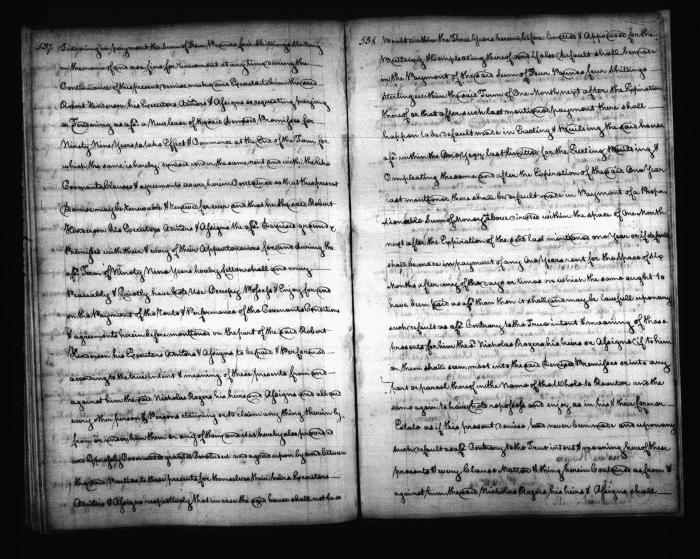 537
Renewing as payment the Sum of Four Pounds four Shillings Sterling
in the name of and as a fine for Renewment at any time during the
Continuance of this present Demise make and Execute to him the said
Robert Henderson his Executors Admrs & Assigns so requesting
or Renewing as afd. a New Lease of the said Demised Premises for
Ninety Nine Years to take Effect & Commence at the End of the Term for
which the same is hereby demised under the same rent and with the like
Covenants Clauses & agreements as are herein Contained so that the present
Demise may be Renewable & Renewed for ever and that he the said Robert
Henderson his Executors Admrs & Assigns the afd. Demised ground &
Premises with their & every of their Appurtenances for and during the
afd. Term of Ninety Nine Years hereby shall and may
Peaceably & Quietly have hold Use Occupy Possess & Enjoy for and
on the Payment of the Rents & Performance of the Covenants Conditions
& agreements herein before mentioned on the part of the said Robert
Henderson his Executors Admrs & Assigns to be paid & Performed
according to the true intent & meaning of these presents from and
against him the said Nicholas Rogers his heirs and Assigns and all and
every other person & Persons claiming or to claim any thing therein by
from or under him them or any of them and it is hereby also provided
and Expressly Covenanted granted Concluded and agreed upon by and between
the said Parties to these presents for themselves their heirs Executors
Admrs & Assigns respectively that in case the said house shall not be
538
Built within the Three Years herein before limited & Appointed for the
Building & Compleating thereof and if also default shall be made
in the Payment of the said Sum of Four Pounds four Shillings
Sterling within the said Term of One Month next after the Expiration
thereof or that after such last mentioned payment there shall
happen to be default made in Erecting & Building the said house
afd. within the One Year last limitted for the Erecting Building &
Compleating the same and after the Expiration of the said One Year
last mentioned there shall be default made in Payment of a Propor
tionable Sum of Money above limited within the space of One Month
next after the Expiration of the said last mentioned one Year or if default
shall be made in payment of any One Years rent for the Space of Six
Months after any of the days or times on which the same ought to
have been paid as afd. than then it shall and may be lawfull upon any
such default as afd. Contrary to the True intent & meaning of these
presents for him the sd. Nicholas Rogers his heirs or Assigns if to him
or them shall seem meet into the said Demised Premises or into any
part or parcel thereof in the Name of the Whole to Reenter and the
same again to have hold repossess and enjoy as in his & their former
Estate as if this present demise had never been made and upon any
such default as afd. Contrary to the True intent & meaning hereof these
presents & every Clause Matter & thing herein Contained as from &
against him the said Nicholas Rogers his heirs & Assigns shall